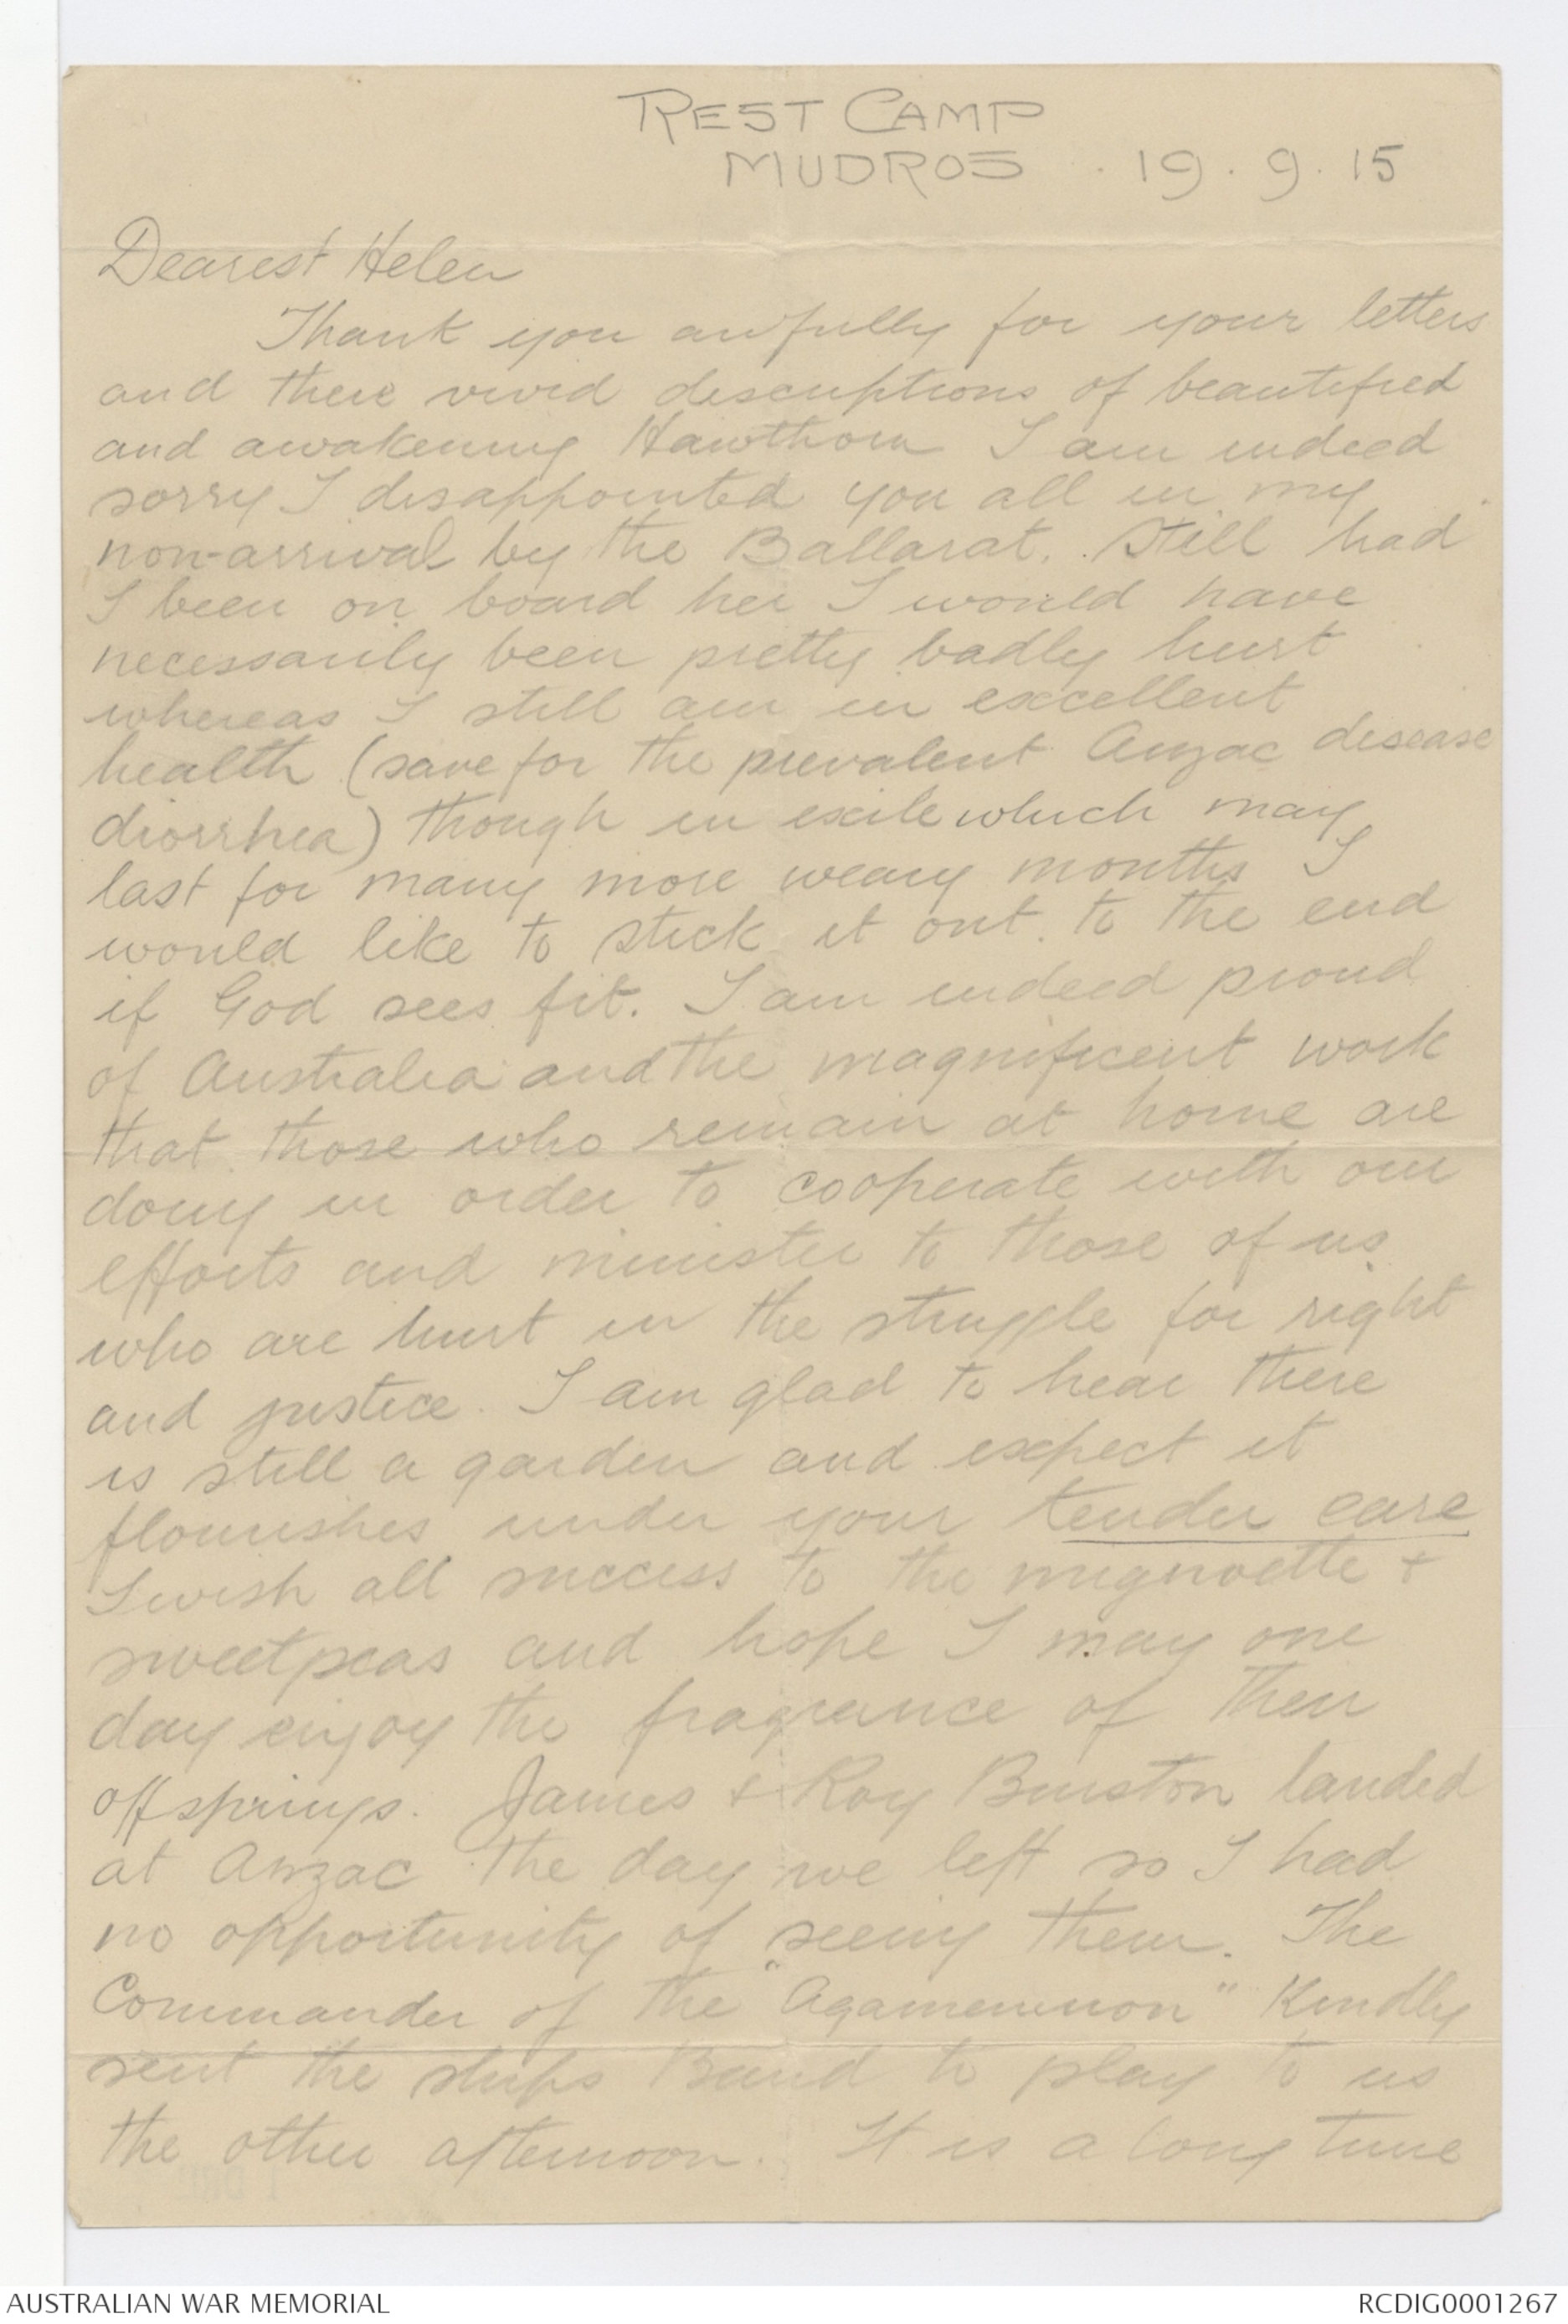 REST CAMP
MUDROS . 19.9.15
Dearest Helen
Thank you awfully for your letters
and there vivid descriptions of beautified
and awakening Hawthorn I am indeed
sorry I disappointed you all in my
non-arrival by the Ballarat. Still had
I been on board her I would have
necessarily been pretty badly hurt
whereas I still am in excellent
health (save for the prevalent Anzac disease
diorrhea) though in exile which may
last for many more weary months I
would like to stick it out to the end
if God sees fit. I am indeed proud
of Australia and the magnificent work
that those who remain at home are
doing in order to cooperate with our
efforts and minister to those of us
who are hurt in the struggle for right
and justice. I am glad to hear there
is still a garden and expect it
flourishes under your tender care
I wish all success to the mignoette +
sweetpeas and hope I may one
day enjoy the fragrance of their
offsprings. James & Roy Burston landed
at Anzac the day we left so I had
no opportunity of seeing them. The
Commander of the "Agamemnon" kindly
sent the ships Band to play to us
the other afternoon. It is a long time
AUSTRALIAN WAR MEMORIAL
RCDIG0001267